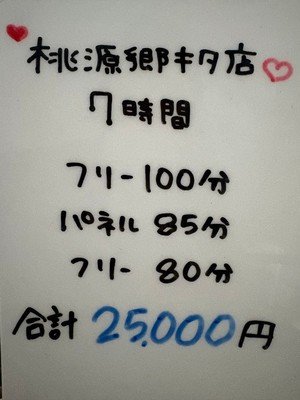 桃源郷キタ店
7時間
フリー100分
パネル 85分
フリー 80分
合計 25.000円